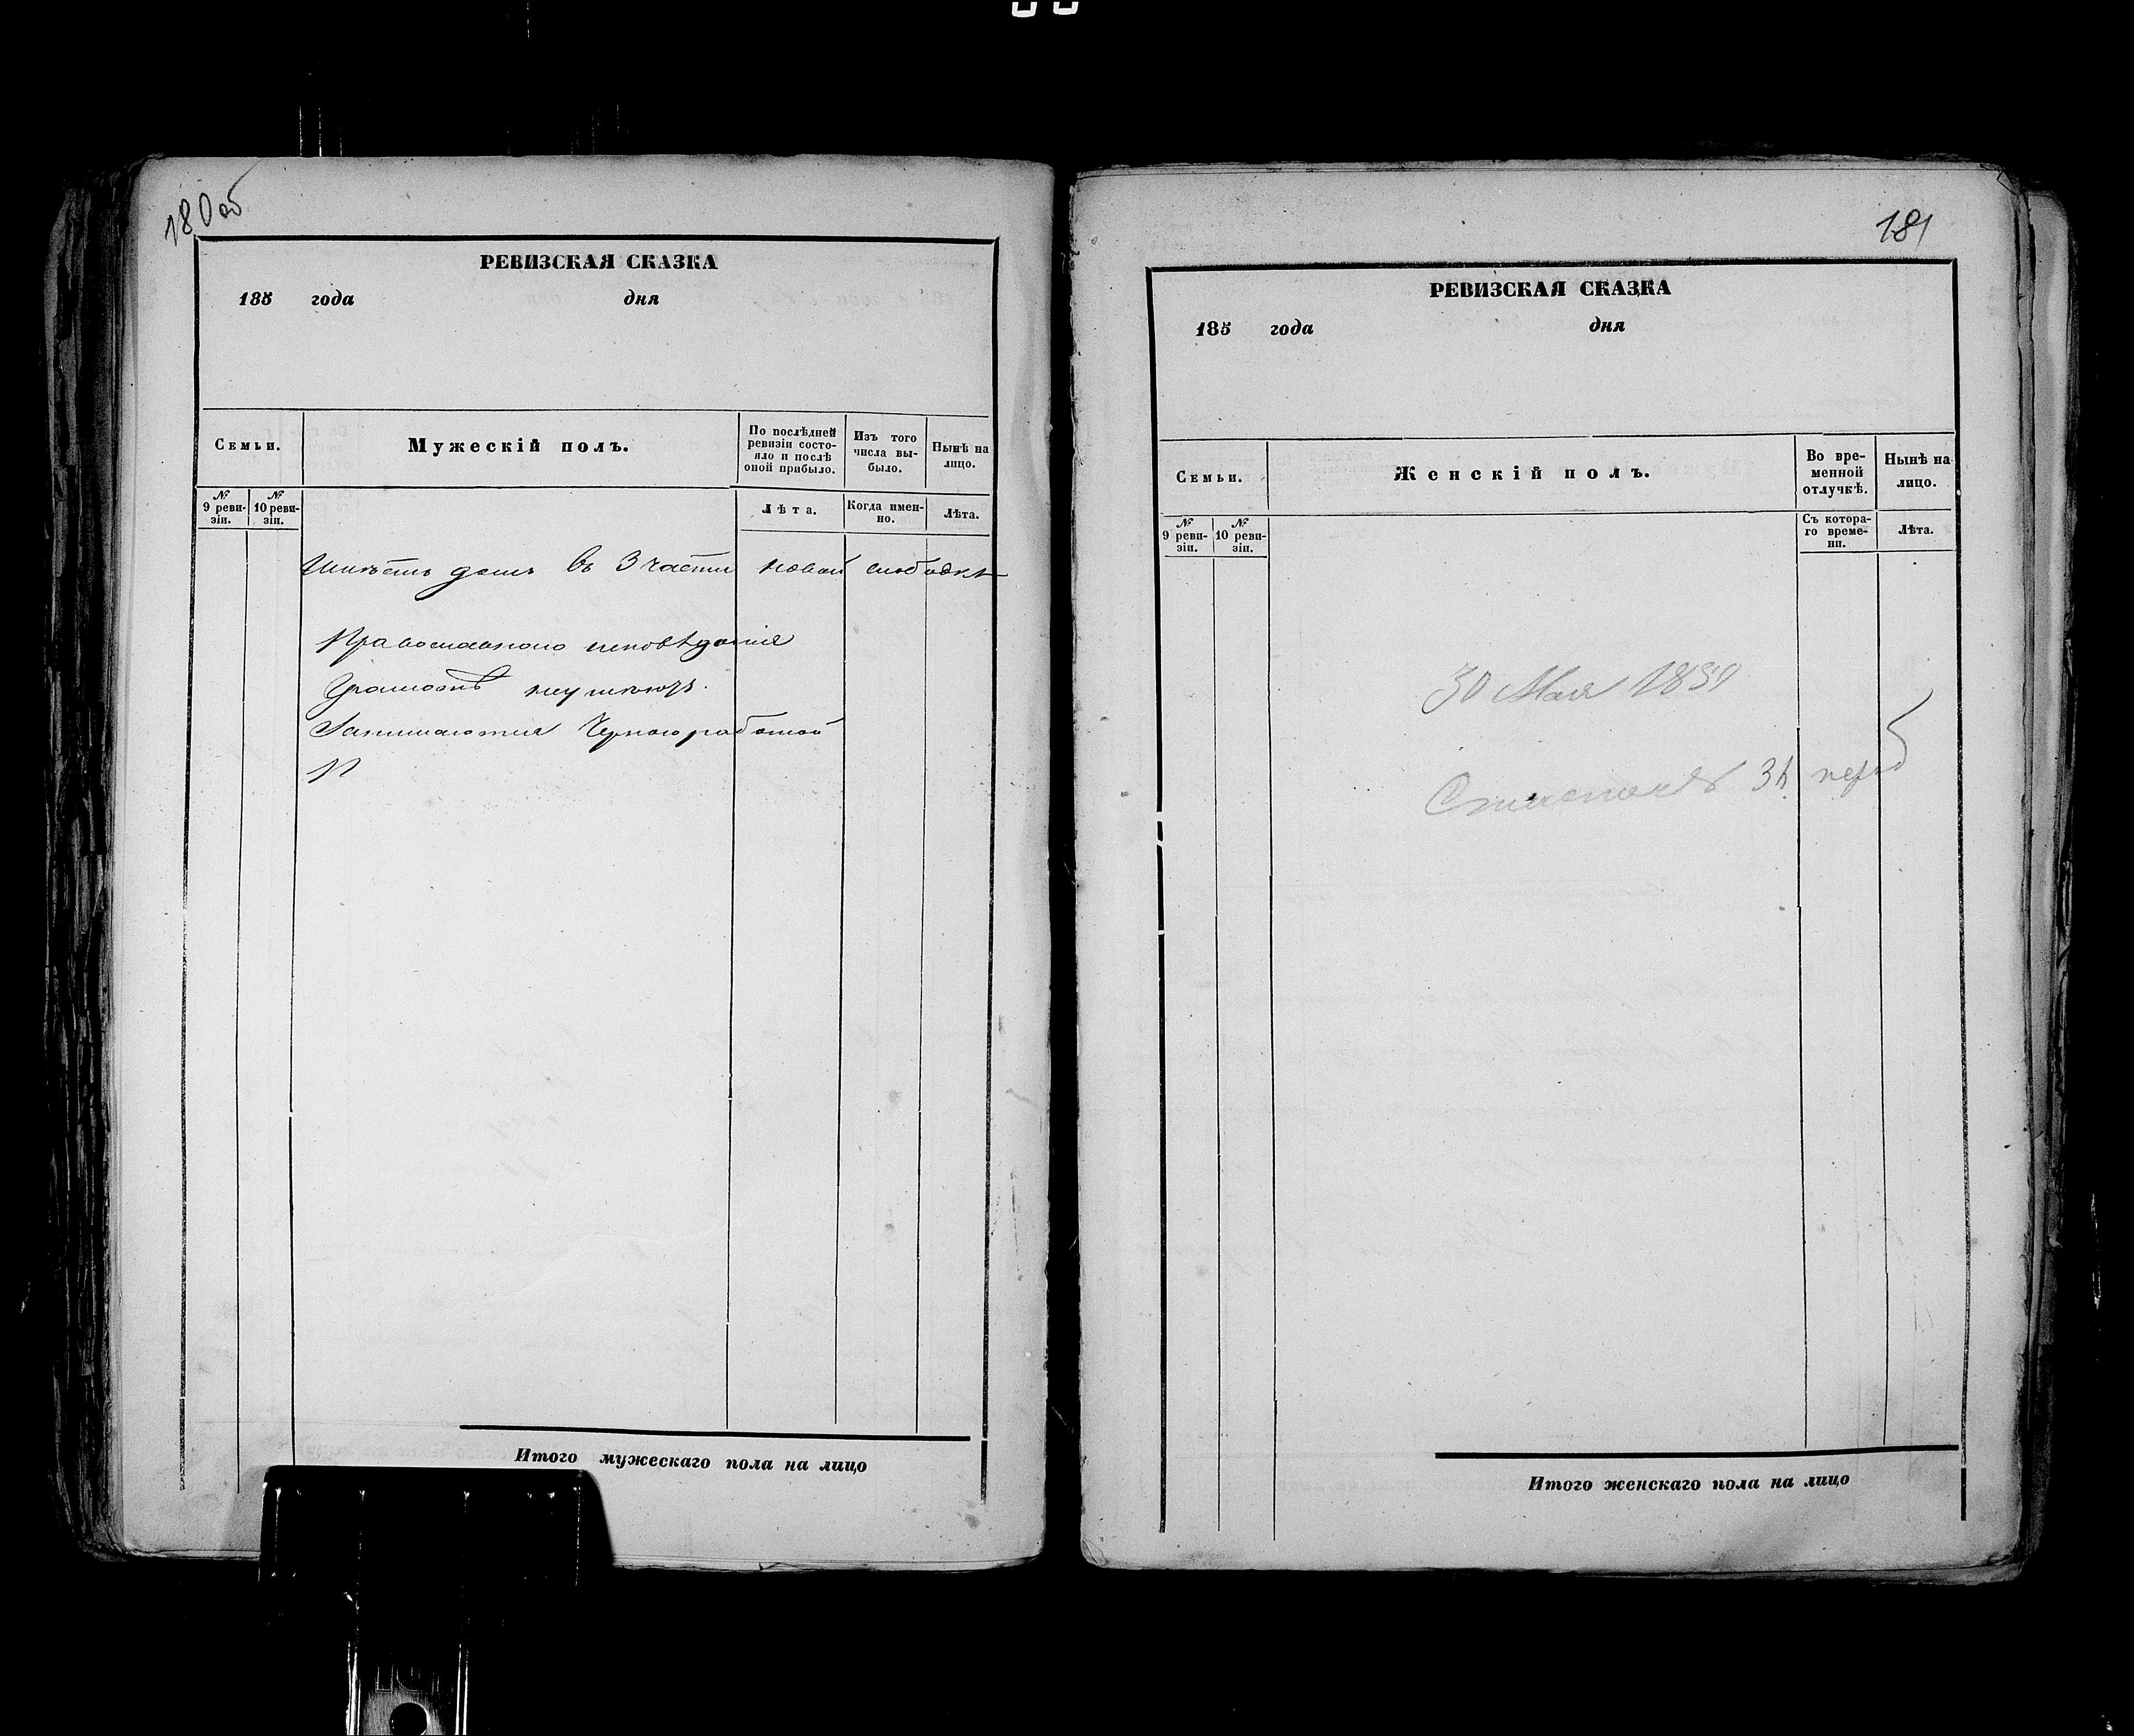 180 об
РЕВИЗСКАЯ СКАЗКА
185 года дня
Семьи.
Мужескій полъ.
По послѣдней ревизіи состояло и послѣ оной прибыло.
Изъ того числа выбыло.
Нынѣ на лицо.
№ 9 ревизіи.
№ 10 ревизіи.
Лѣта.
Когда именно.
Лѣта.
Имѣетъ домъ въ 3 части новой слободкѣ
Православнаго исповѣданія
Грамотѣ неумѣютъ.
Занимаются Черноюработой
Итого мужескаго пола на лицо
181
РЕВИЗСКАЯ СКАЗКА
185 года дня
Семьи.
Женскій полъ.
Во временной отлучкѣ.
Нынѣ на лицо.
№ 9 ревизіи.
№ 10 ревизіи.
Съ котораго времени.
Лѣта.
30 Мая 1859
Итого женскаго пола на лицо